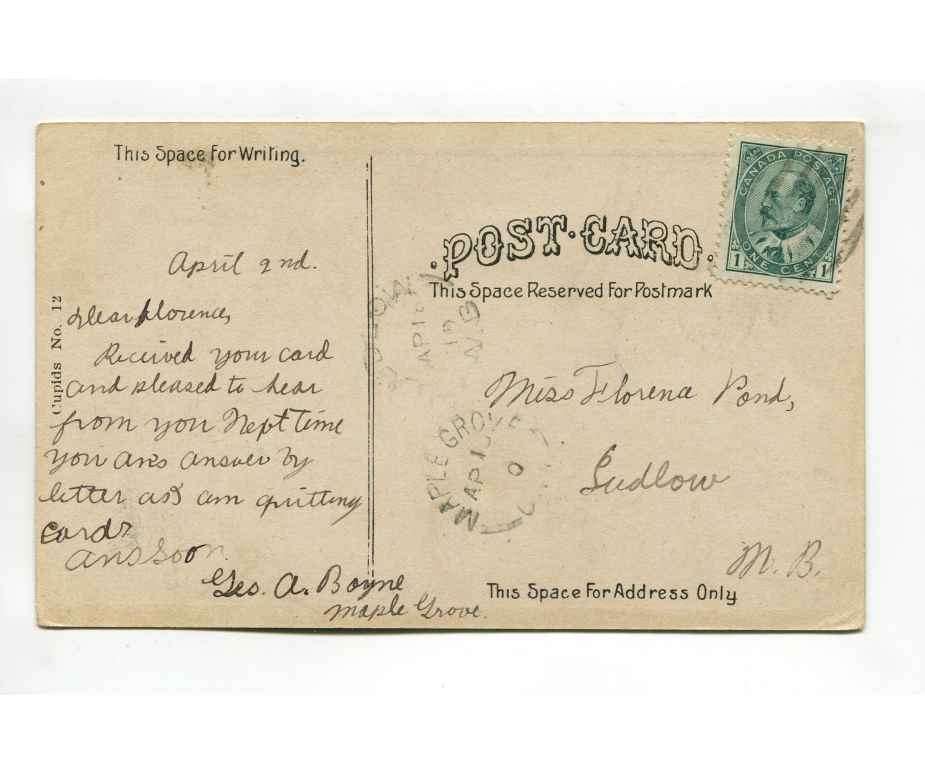 This Space For Writing.
April 2nd.
Dear Florence,
Received your card
and pleased to hear
from you Nept time
you ans answer by
letter as am quitting
cards
ans soon.
Geo. A. Boyne
Maple Grove.
Cupids No. 12
CANADA POSTAGE
1 ONE CENT 1
POST·CARD.
This Space Reserved For Postmark
AP 1
N.B
MAPLE GROVE
AP 1
Miss Florence Pond,
Ludlow
N. B.
This Space For Address Only